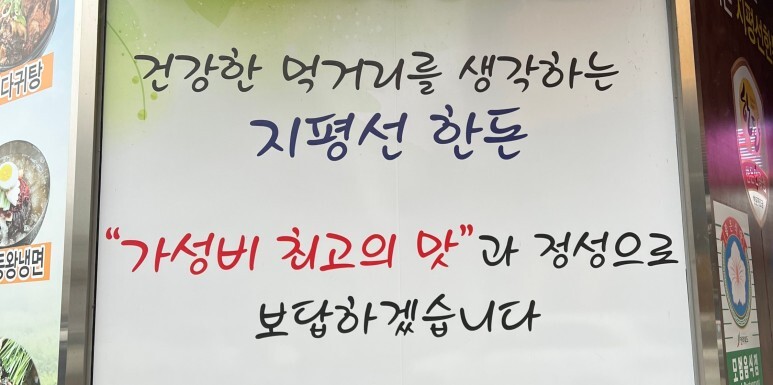 건강한 먹거리를 생각하는
지평선 한돈
"가성비 최고의 맛"과 정성으로
보답하겠습니다
다귀탕
왕냉면
지평선한
모범음식점